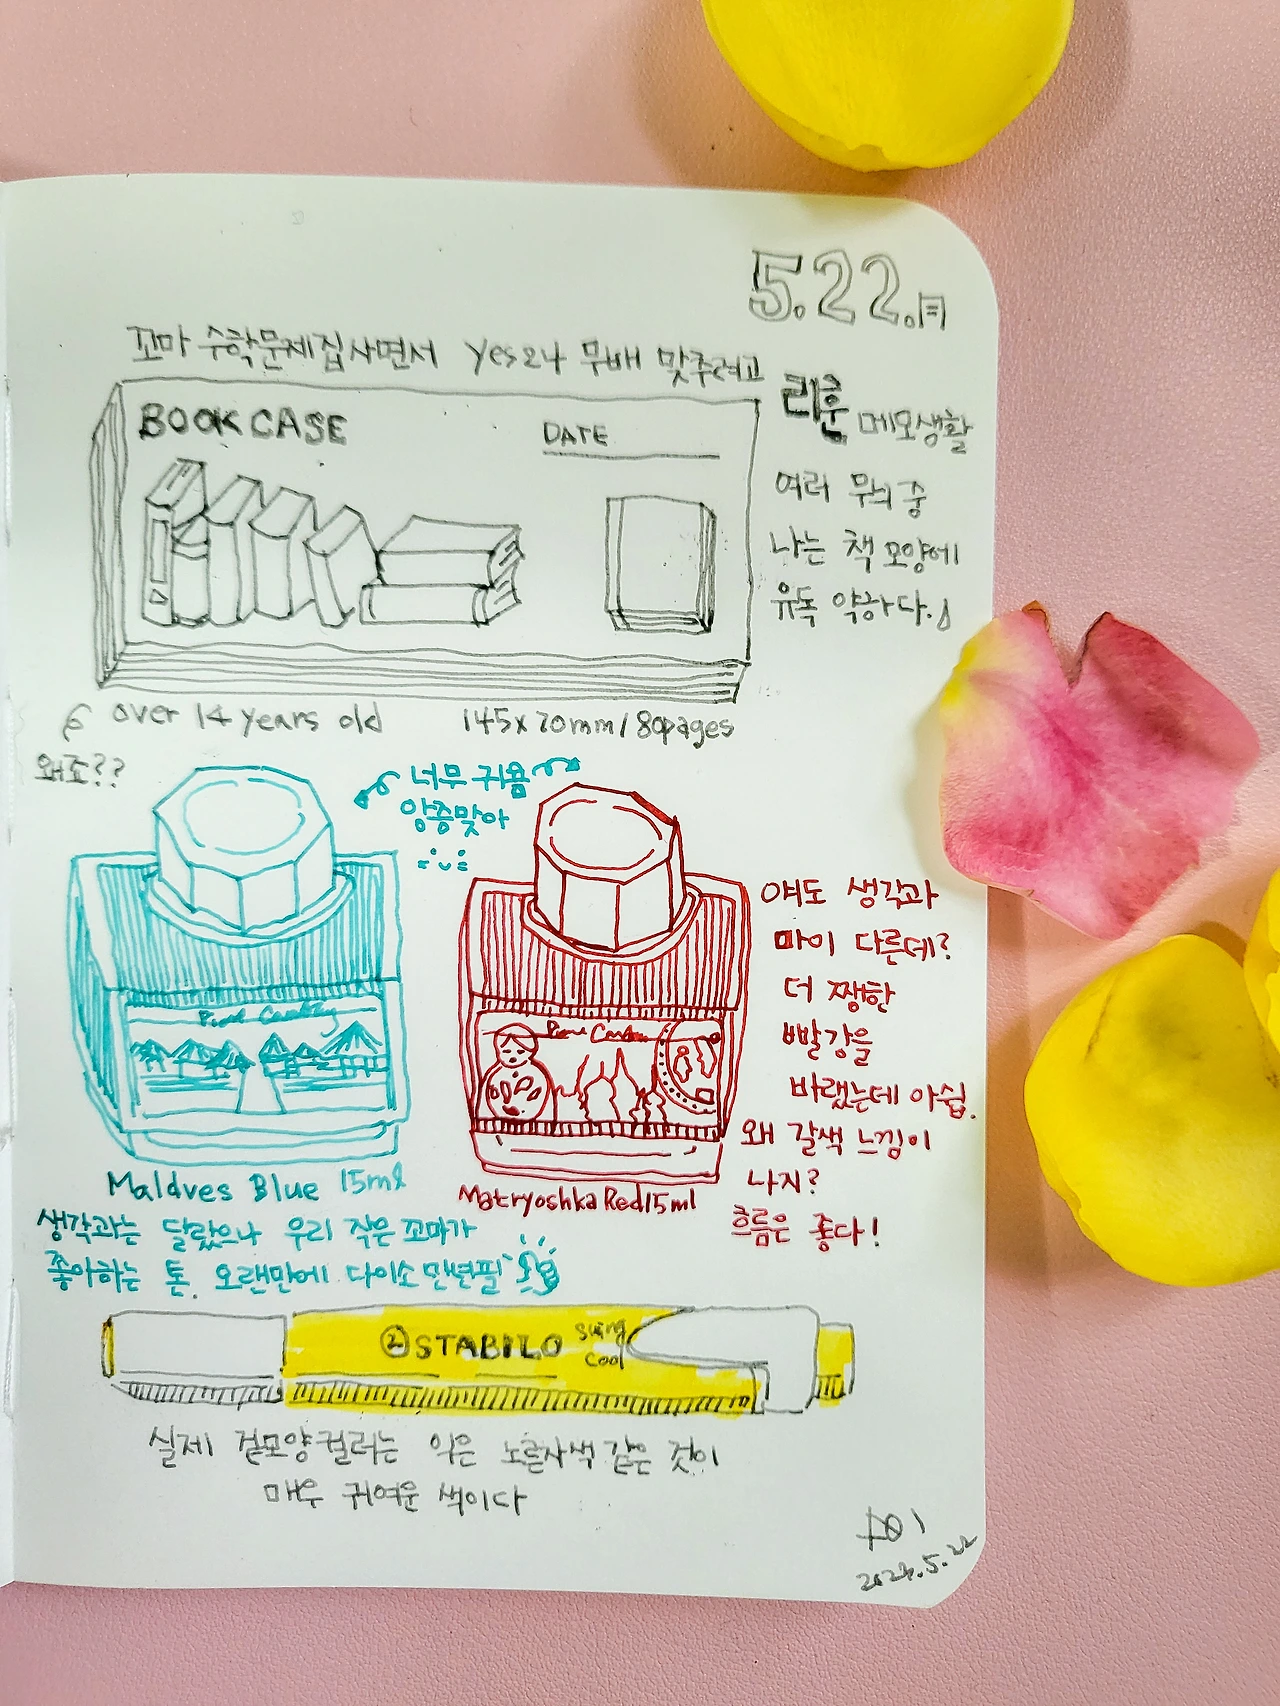 5.22.月
꼬마 수학문제집사면서 yes24 무배 맞추려고
리훈 메모생활
BOOK CASE
DATE
여러 무늬 중
나는 책 모양에
유독 약하다.
over 14 years old
145x70mm / 80pages
왜죠??
너무 귀욤
앙증맞아
Maldves Blue 15ml
Matryoshka Red 15ml
얘도 생각과
마이 다른데?
더 쨍한
빨강을
바랬는데 아쉽.
왜 갈색 느낌이
나지?
흐름은 좋다!
생각과는 달랐으나 우리 작은 꼬마가
좋아하는 톤. 오랜만에 다이소 만년필
② STABILO swing
cool
실제 겉모양 컬러는 익은 노른자색 같은 것이
매우 귀여운 색이다